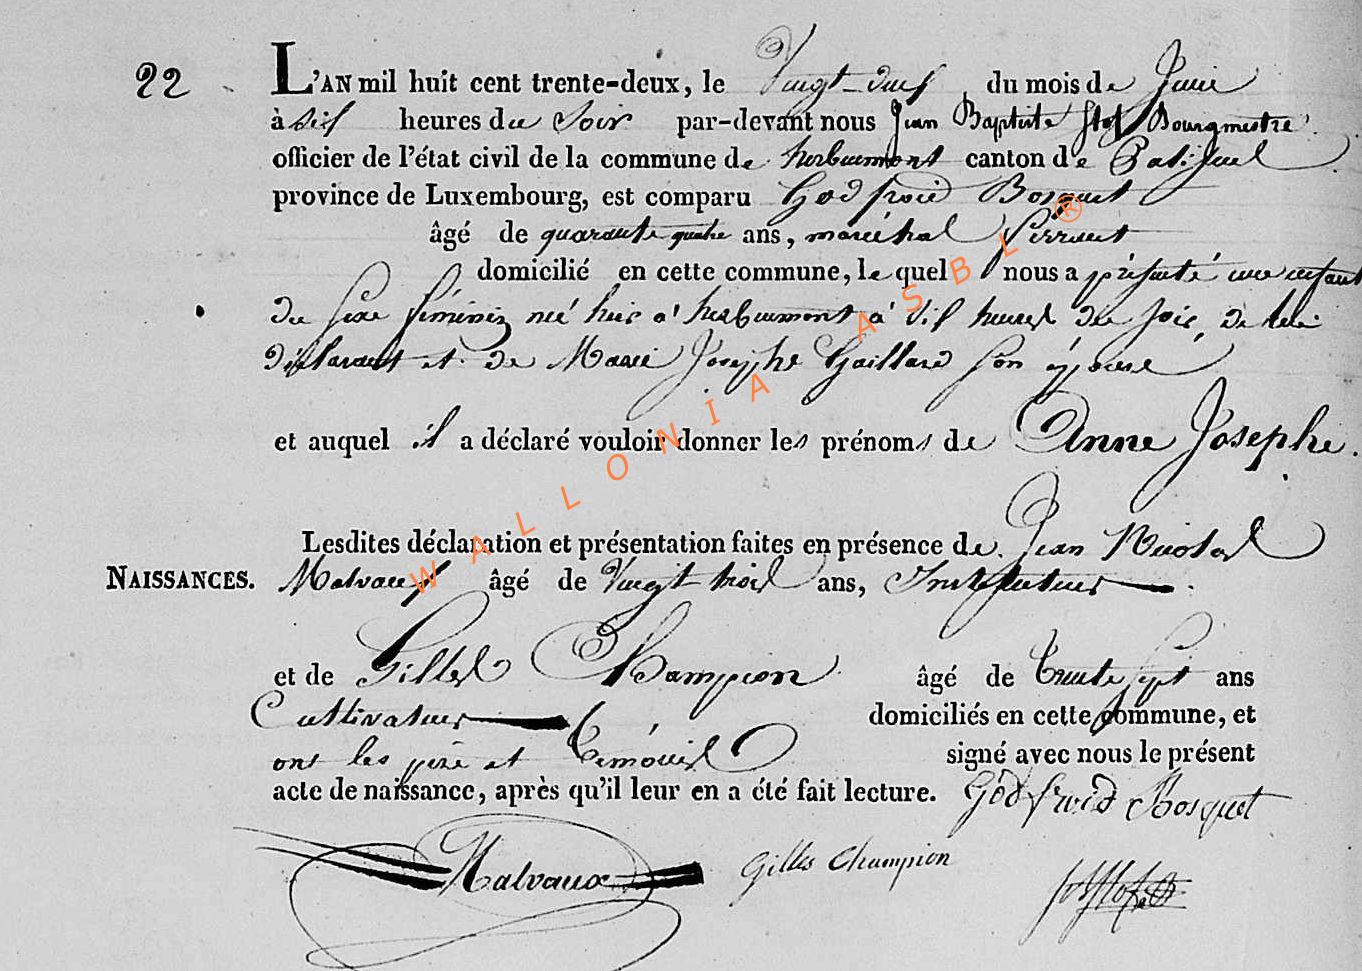 22
L'AN mil huit cent trente-deux, le Vingt-deux du mois de Juin
à dix heures du Soir par-devant nous Jean Baptiste Bourgmestre
officier de l'état civil de la commune de herbeumont canton de Paliseul
province de Luxembourg, est comparu Godfroid Bosquet
âgé de quarante quatre ans, maréchal ferrant
domicilié en cette commune, le quel nous a présenté une enfant
du sexe féminin né hier à herbeumont à dix heures du soir, de lui
déclarant et de Marie Josephe Gaillard son épouse
et auquel il a déclaré vouloir donner les prénoms de Anne Josephe.
Lesdites déclaration et présentation faites en présence de Jean Nicolas
NAISSANCES. Malvaux âgé de Vingt trois ans, Instituteur
et de Gilles Champion âgé de trente sept ans
Cultivateur domiciliés en cette commune, et
ont les père et témoins signé avec nous le présent
acte de naissance, après qu'il leur en a été fait lecture. Godfroid Bosquet
Malvaux Gilles Champion
WALLONIA ASBL ®